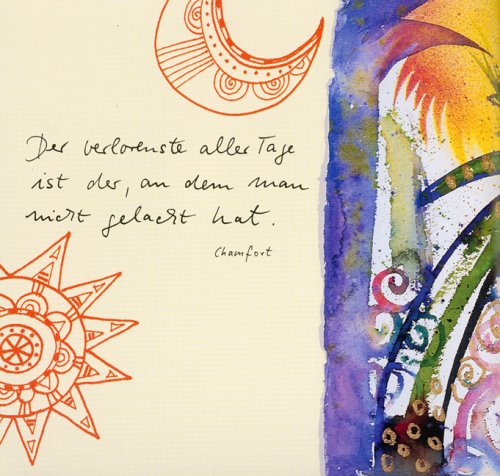 Der verlorenste aller Tage
ist der, an dem man
nicht gelacht hat.
Chamfort